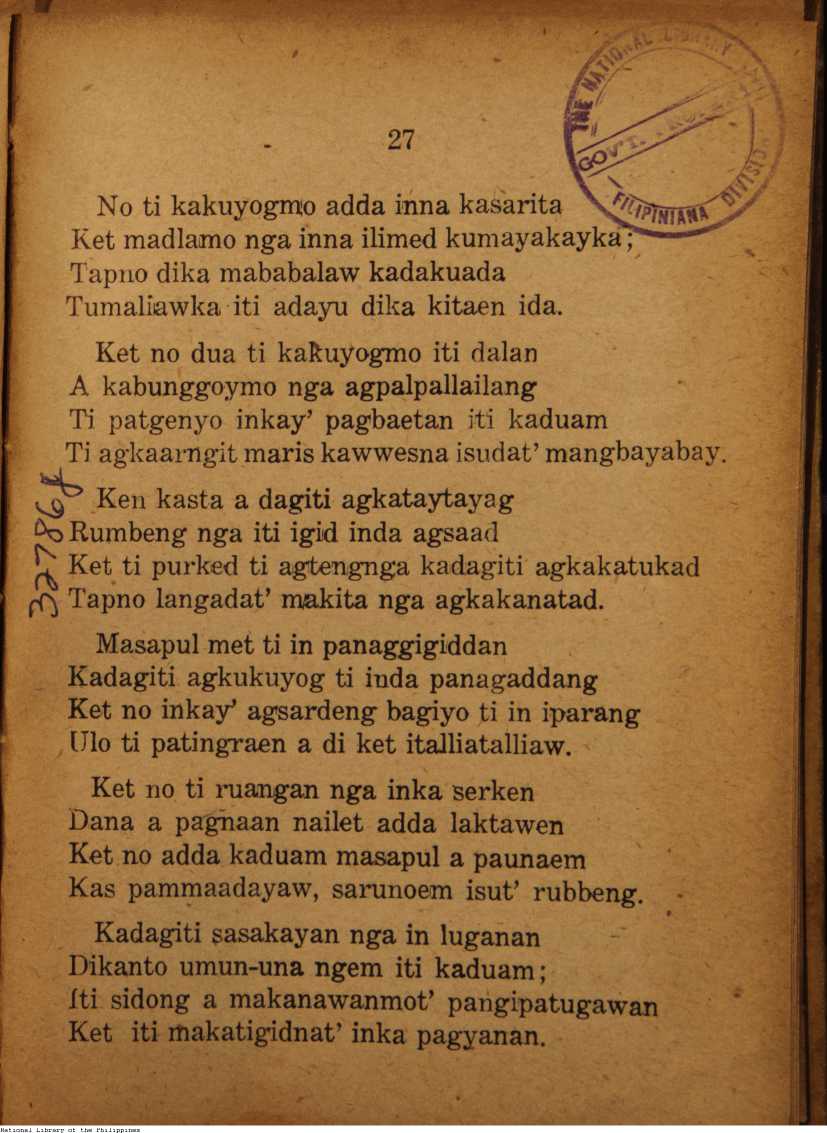 THE NATIONAL LIBRARY
GOV'T.
FILIPINIANA DIVISION
27
No ti kakuyogmo adda inna kasarita
Ket madlamo nga inna ilimed kumayakayka;
Tapno dika mababalaw kadakuada
Tumaliawka iti adayu dika kitaen ida.
Ket no dua ti kakuyogmo iti dalan
A kabunggoymo nga agpalpallailang
Ti patgenyo inkay' pagbaetan iti kaduam
Ti agkaarngit maris kawwesna isudat' mangbayabay.
Ken kasta a dagiti agkataytayag
Rumbeng nga iti igid inda agsaad
Ket ti purked ti agtengnga kadagiti agkakatukad
Tapno langadat' makita nga agkakanatad.
Masapul met ti in panaggigiddan
Kadagiti agkukuyog ti inda panagaddang
Ket no inkay' agsardeng bagiyo ti in iparang
Ulo ti patingraen a di ket italliatalliaw.
Ket no ti ruangan nga inka serken
Dana a pagnaan nailet adda laktawen
Ket no adda kaduam masapul a paunaem
Kas pammaadayaw, sarunoem isut' rubbeng.
Kadagiti sasakayan nga in luganan
Dikanto umun-una ngem iti kaduam;
Iti sidong a makanawanmot' pangipatugawan
Ket iti makatigidnat' inka pagyanan.
National Library of the Philippines